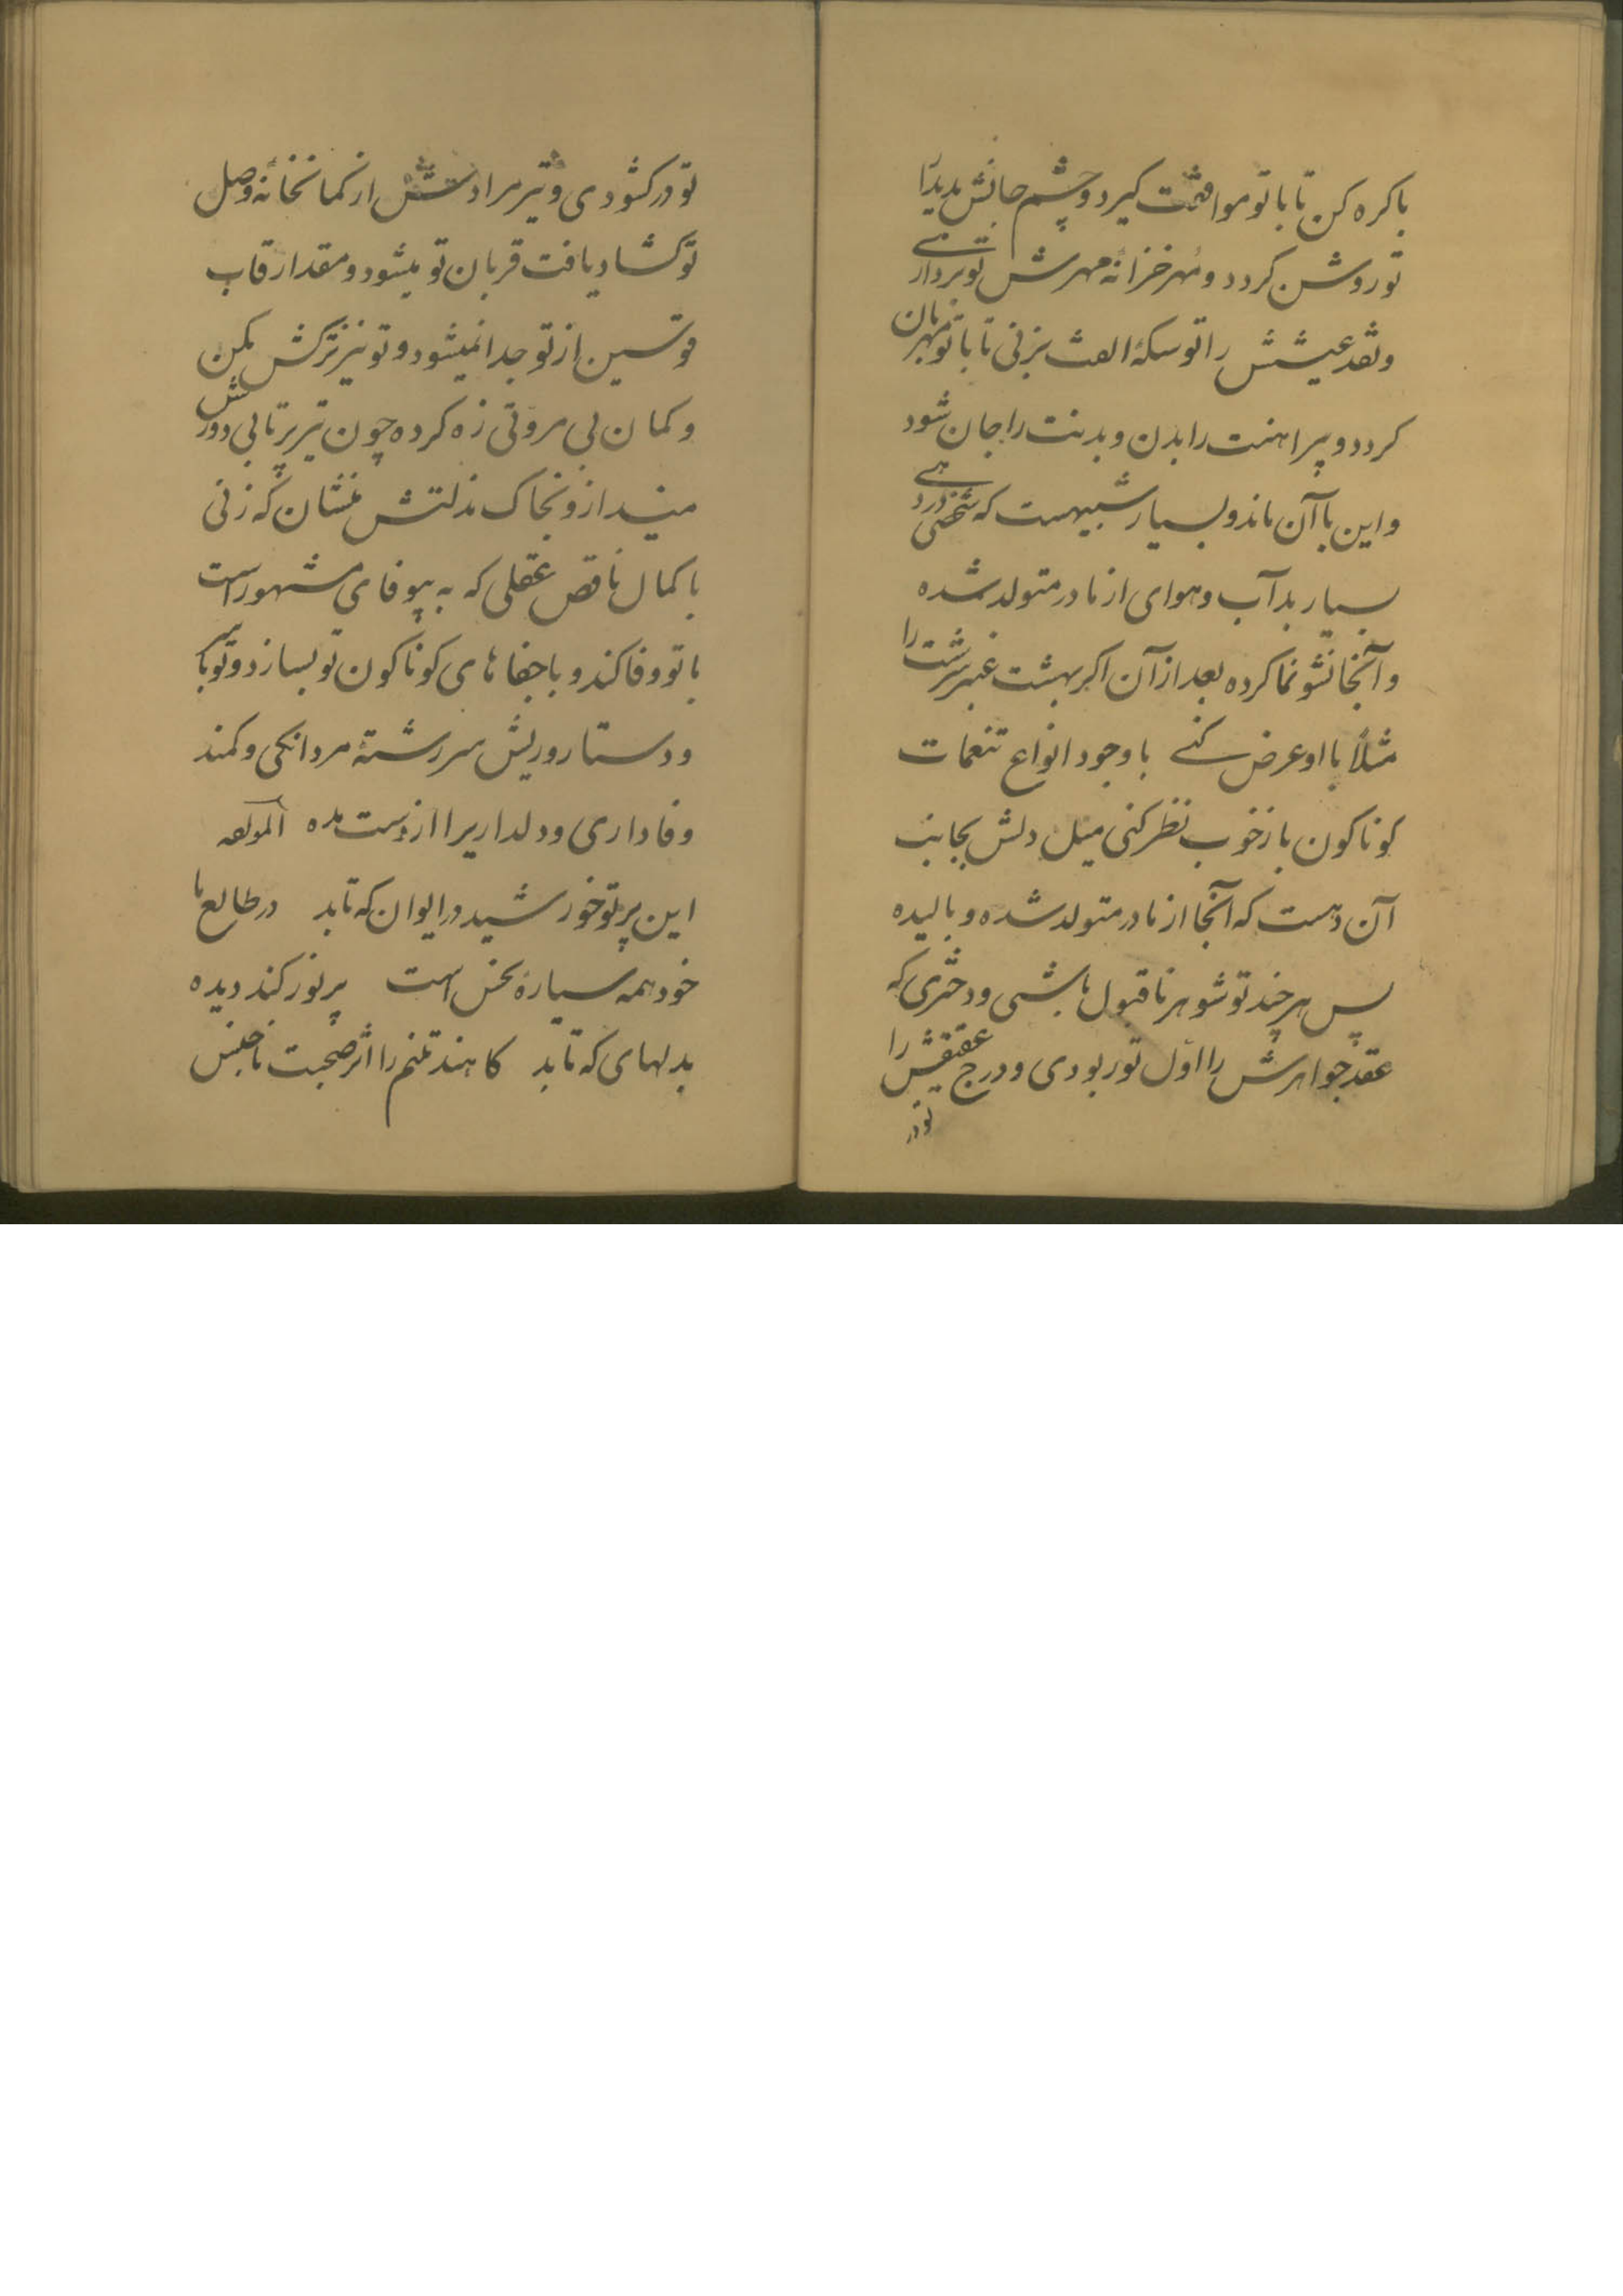 باکره کن تا با تو موافقت کیرد و چشم جانش بدیدار
تو روشن کردد و مُهر خزانهٔ مهرش تو برداری
و نقد عیشش را تو سکهٔ الفت بزنی تا با تو مهربان
کردد و پیراهنت را بدن و بدنت را جان شود
و این با آن ماند و بسیار شبیهست که شخصی در دهی
بسیار بد آب و هوای از مادر متولد شده
و آنجا نشو نما کرده بعد از آن اکر بهشت عنبر سرشت را
مثلاً با او عرض کنے با وجود انواع تنعمات
کوناکون باز خوب نظر کنی میل دلش بجانب
آن دهست که آنجا از مادر متولد شده و بالیده
پس هر چند تو شوهر ناقبول باشی و دختری که
عقد جواهرش را اوّل تو ربودی و درج عقیقش را
تو در
تو در کشودی و تیر مرادش از کمانخانهٔ وصل
تو کشاد یافت قربان تو میشود و مقدار قاب
قوسین از تو جدا نمیشود و تو نیز ترکش مکن
و کمان بی مروّتی زه کرده چون تیر پرتابی دورش
مینداز و بخاک مذلتش منشان که زنی
با کمال ناقص عقلی که به بیوفای مشهور است
با تو وفا کند و با جفاهای کوناکون تو بسازد و تو با
و دستار و ریش سررشتهٔ مردانکی و کمند
وفاداری و دلداریرا از دست مده لمولفه
این پرتو خورشید در ایوان که تابد در طالع ما
خود همه سیارهٔ نحس است پر نور کند دیده
بدلهای که تابد کاهند تنم را اثر صحبت ناجنس